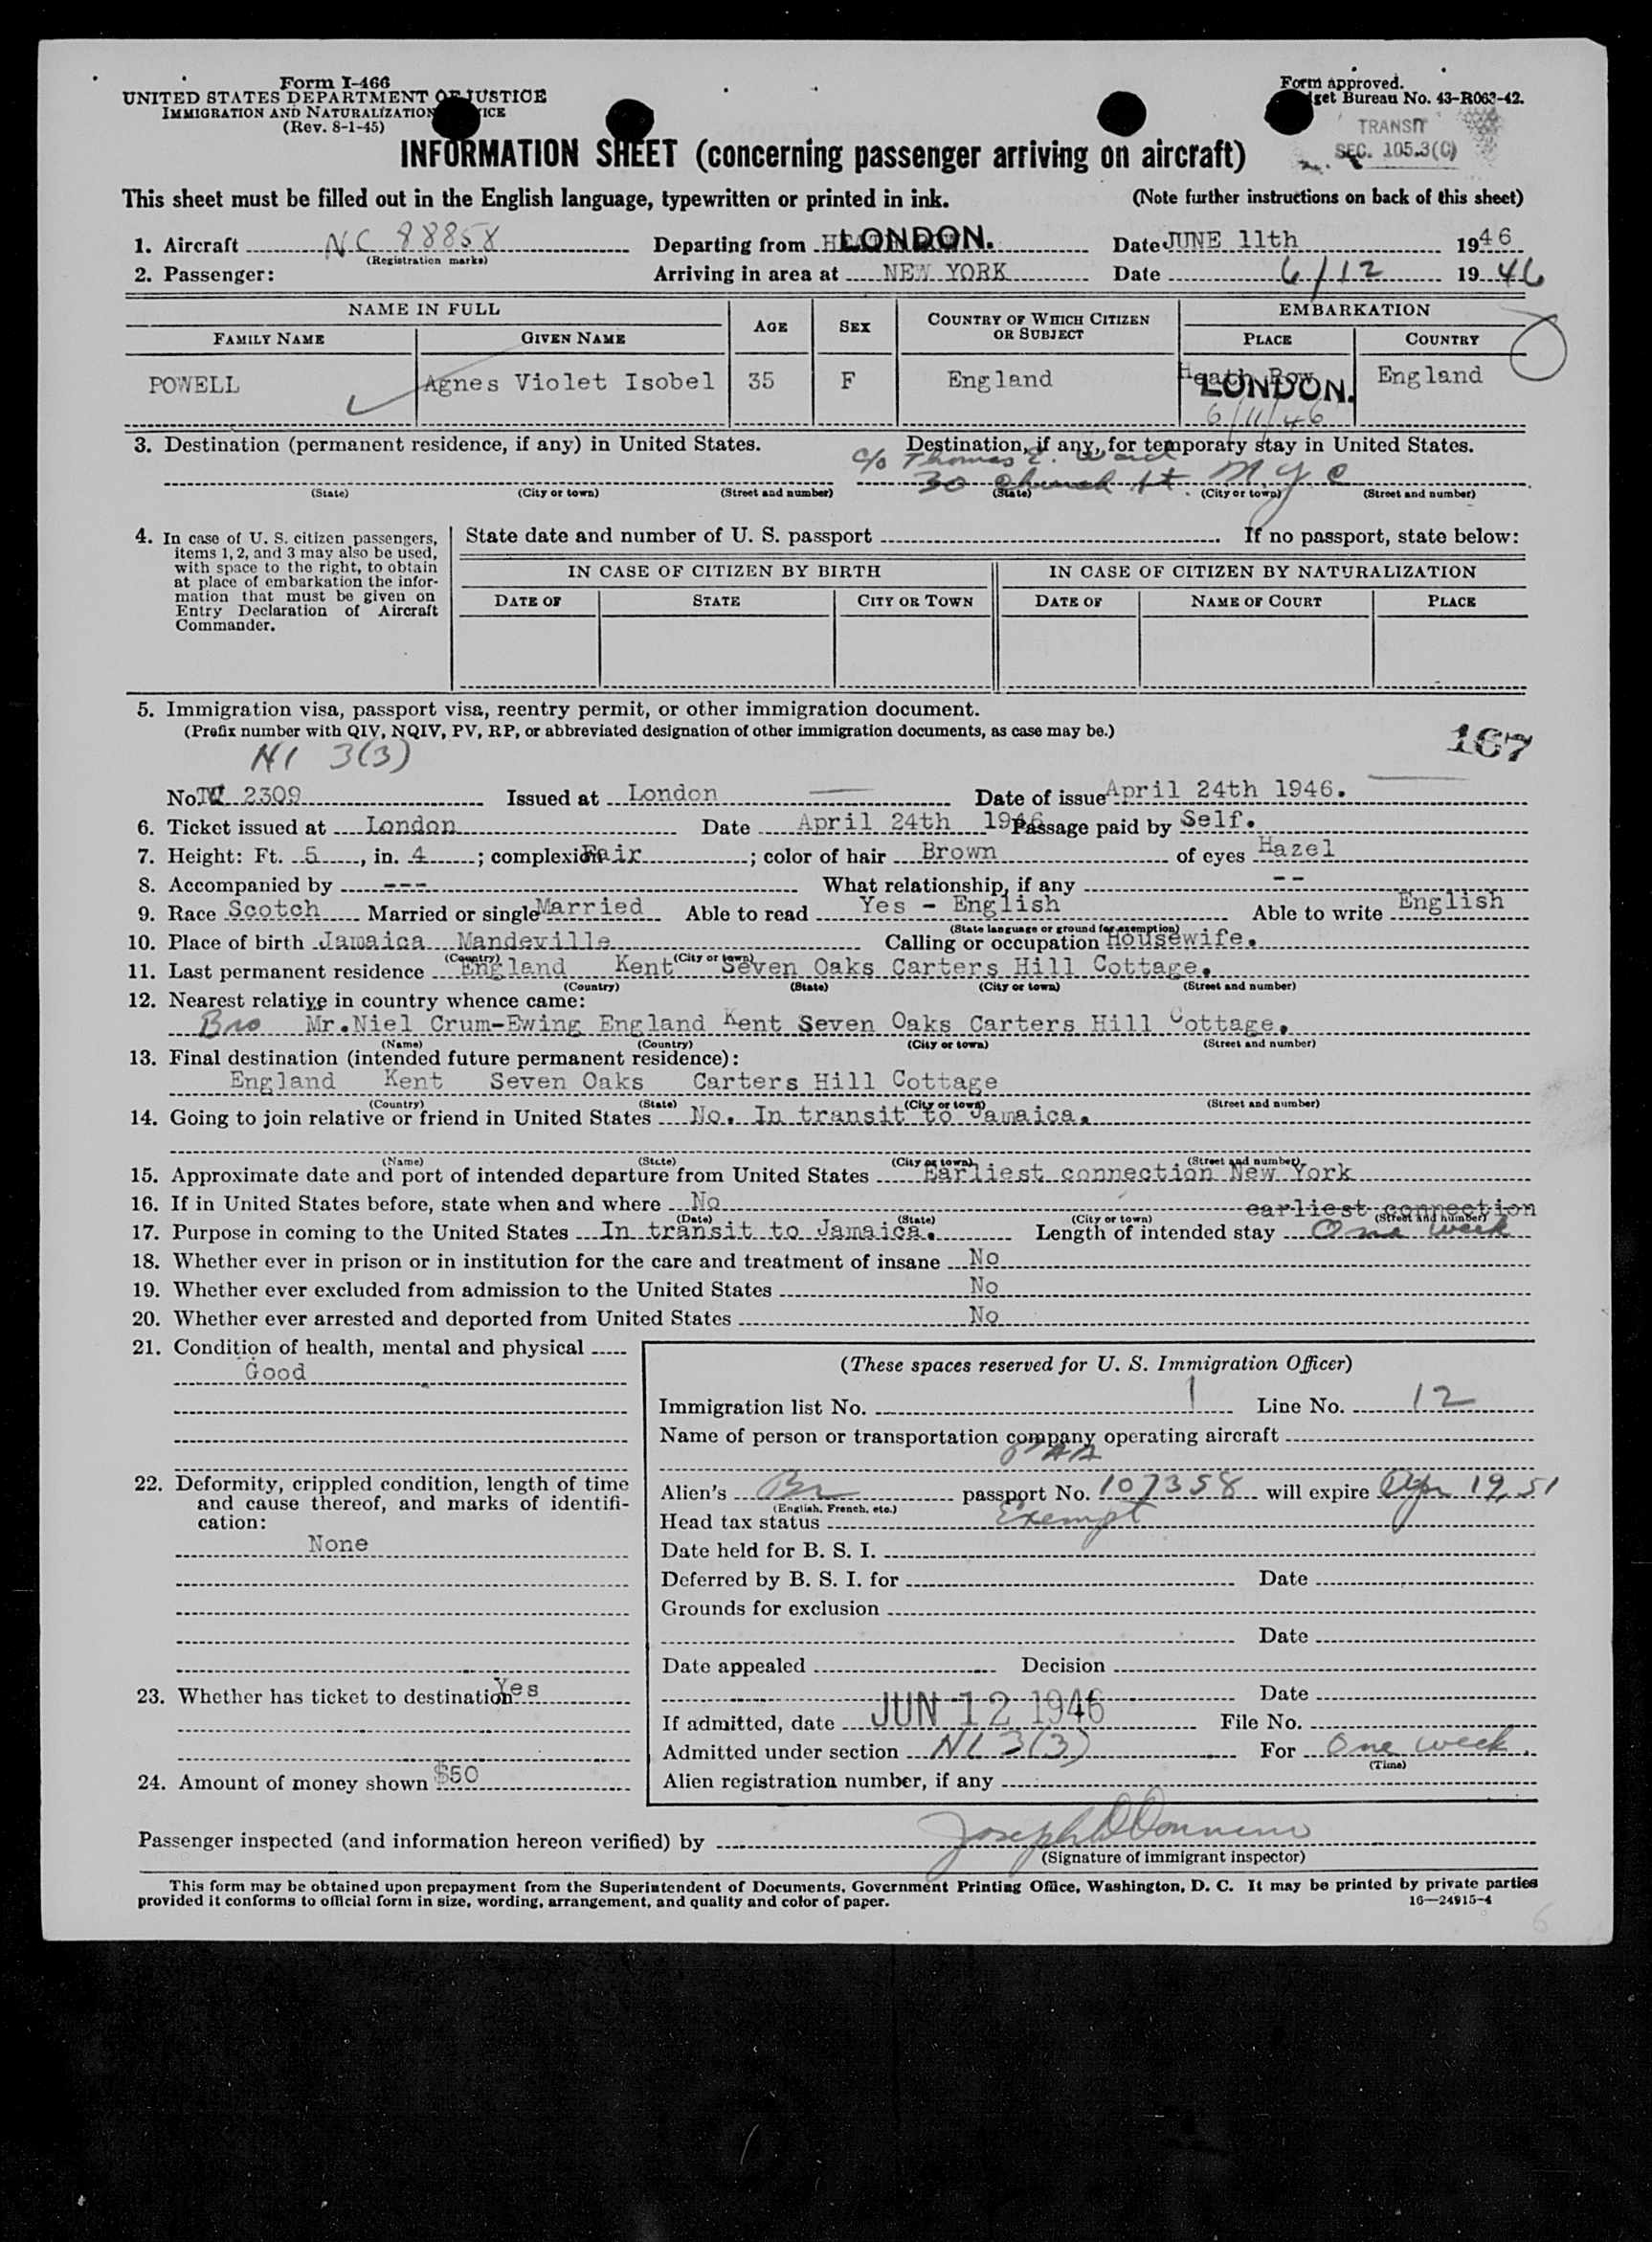 Form I-466
UNITED STATES DEPARTMENT OF JUSTICE
IMMIGRATION AND NATURALIZATION
(Rev. 8-1-45)
Form approved.
get Bureau No. 43-R063-42.
TRANSIT
SEC. 105.3(C)
INFORMATION SHEET (concerning passenger arriving on aircraft)
This sheet must be filled out in the English language, typewritten or printed in ink. (Note further instructions on back of this sheet)
1. Aircraft NC 88858 Departing from LONDON. Date JUNE 11th 1946
(Registration marks)
2. Passenger: Arriving in area at NEW YORK Date 6/12 1946
NAME IN FULL AGE SEX COUNTRY OF WHICH CITIZEN OR SUBJECT EMBARKATION
FAMILY NAME GIVEN NAME PLACE COUNTRY
POWELL Agnes Violet Isobel 35 F England Heath Row England
LONDON.
6/11/46
3. Destination (permanent residence, if any) in United States. Destination, if any, for temporary stay in United States.
c/o Thomas E. Ward
30 Church St. N.Y.C
(State) (City or town) (Street and number) (State) (City or town) (Street and number)
4. In case of U. S. citizen passengers, items 1, 2, and 3 may also be used, with space to the right, to obtain at place of embarkation the information that must be given on Entry Declaration of Aircraft Commander.
State date and number of U. S. passport If no passport, state below:
IN CASE OF CITIZEN BY BIRTH IN CASE OF CITIZEN BY NATURALIZATION
DATE OF STATE CITY OR TOWN DATE OF NAME OF COURT PLACE
5. Immigration visa, passport visa, reentry permit, or other immigration document.
(Prefix number with QIV, NQIV, PV, RP, or abbreviated designation of other immigration documents, as case may be.)
167
NI 3(3)
No. 2309 Issued at London Date of issue April 24th 1946.
6. Ticket issued at London Date April 24th 1946 Passage paid by Self.
7. Height: Ft. 5, in. 4; complexion Fair; color of hair Brown of eyes Hazel
8. Accompanied by --- What relationship, if any --
9. Race Scotch Married or single Married Able to read Yes - English Able to write English
(State language or ground for exemption)
10. Place of birth Jamaica Mandeville Calling or occupation Housewife.
(Country) (City or town)
11. Last permanent residence England Kent Seven Oaks Carters Hill Cottage.
(Country) (State) (City or town) (Street and number)
12. Nearest relative in country whence came:
Bro Mr.Niel Crum-Ewing England Kent Seven Oaks Carters Hill Cottage.
(Name) (Country) (City or town) (Street and number)
13. Final destination (intended future permanent residence):
England Kent Seven Oaks Carters Hill Cottage
(Country) (State) (City or town) (Street and number)
14. Going to join relative or friend in United States No. In transit to Jamaica.
(Name) (State) (City or town) (Street and number)
15. Approximate date and port of intended departure from United States Earliest connection New York
16. If in United States before, state when and where No
(Date) (State) (City or town) (Street and number)
earliest connection
17. Purpose in coming to the United States In transit to Jamaica. Length of intended stay One week
18. Whether ever in prison or in institution for the care and treatment of insane No
19. Whether ever excluded from admission to the United States No
20. Whether ever arrested and deported from United States No
21. Condition of health, mental and physical
Good
22. Deformity, crippled condition, length of time and cause thereof, and marks of identification:
None
23. Whether has ticket to destination Yes
24. Amount of money shown $50
(These spaces reserved for U. S. Immigration Officer)
Immigration list No. 1 Line No. 12
Name of person or transportation company operating aircraft
PAA
Alien's Br passport No. 107358 will expire Apr 19, 51
(English, French, etc.)
Head tax status Exempt
Date held for B. S. I.
Deferred by B. S. I. for Date
Grounds for exclusion
Date
Date appealed Decision
Date
If admitted, date JUN 12 1946 File No.
Admitted under section NI 3(3) For One week.
(Time)
Alien registration number, if any
Passenger inspected (and information hereon verified) by
(Signature of immigrant inspector)
This form may be obtained upon prepayment from the Superintendent of Documents, Government Printing Office, Washington, D. C. It may be printed by private parties
provided it conforms to official form in size, wording, arrangement, and quality and color of paper. 16—24915-4
6